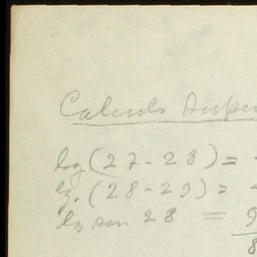 Calculs super
log (27-28) = -
lg. (28-29) = -
lg sen 28 = 9
8